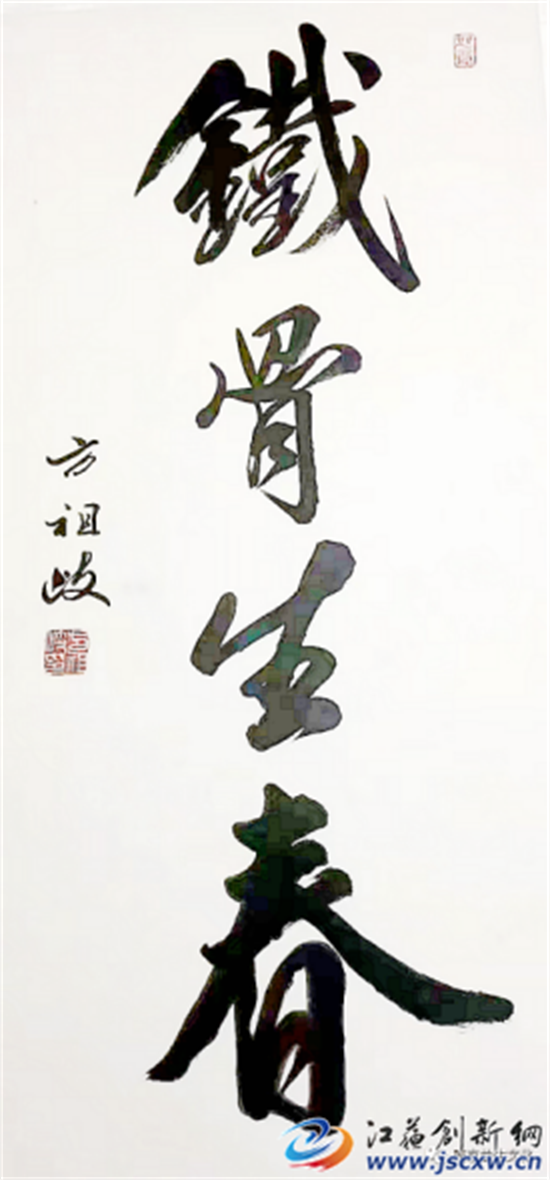 鐵骨生春
方祖岐
江苏创新網
www.jscxw.cn